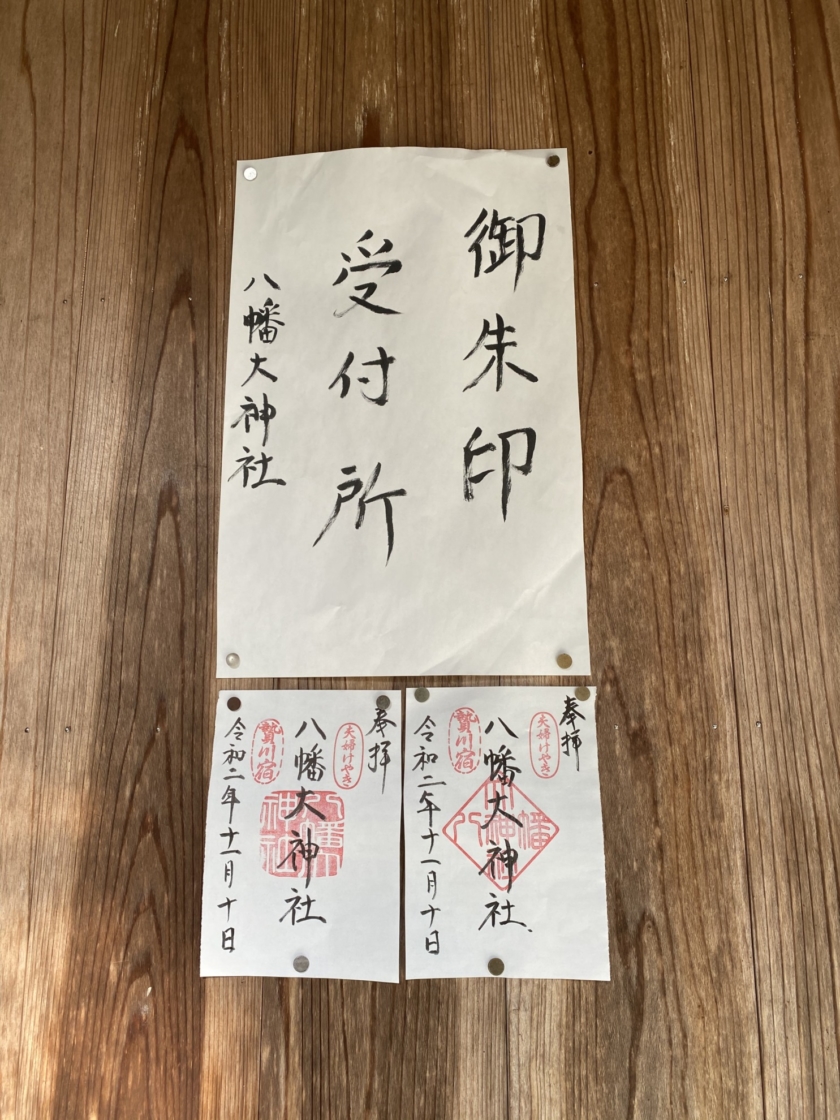 御朱印
受付所
八幡大神社
奉拝
夫婦けやき
八幡大神社
八幡神社
贄川宿
令和二年十一月十日
奉拝
夫婦けやき
八幡大神社
八幡神社
贄川宿
令和二年十一月十日